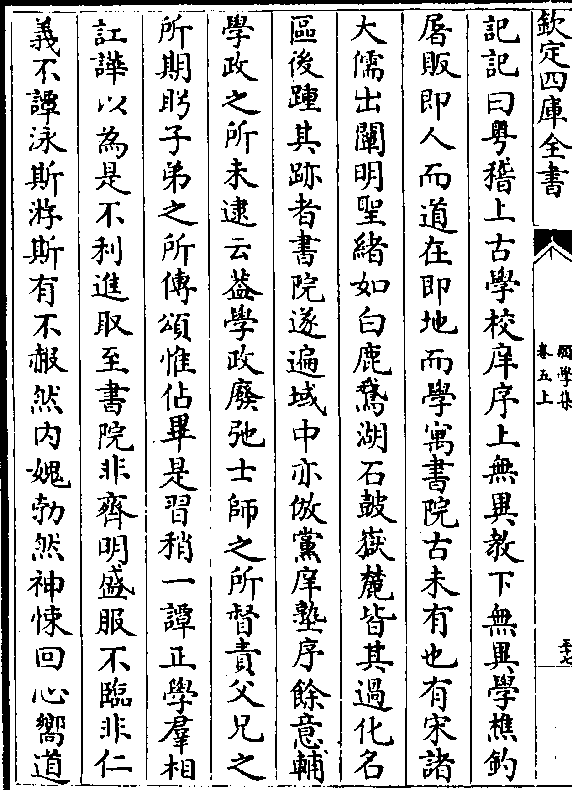 欽定四庫全書
願學集
卷五上
三十七
記記曰粤稽上古學校庠序上無異教下無異學樵釣
屠販即人而道在即地而學寓書院古未有也有宋諸
大儒出闡明聖緒如白鹿鵞湖石鼓嶽麓皆其過化名
區後踵其跡者書院遂遍域中亦倣黨庠塾序餘意輔
學政之所未逮云葢學政廢弛士師之所督責父兄之
所期盻子弟之所傳頌惟佔畢是習稍一譚正學羣相
訌譁以為是不利進取至書院非齊明盛服不臨非仁
義不譚泳斯游斯有不赧然内媿勃然神悚回心嚮道